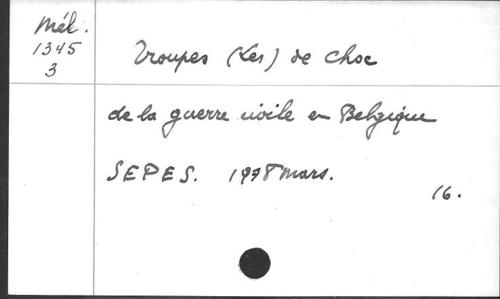 Mél.
1345
3
Troupes (Les) de choc
de la guerre civile en Belgique
SEPES. 1978 Mars.
16.